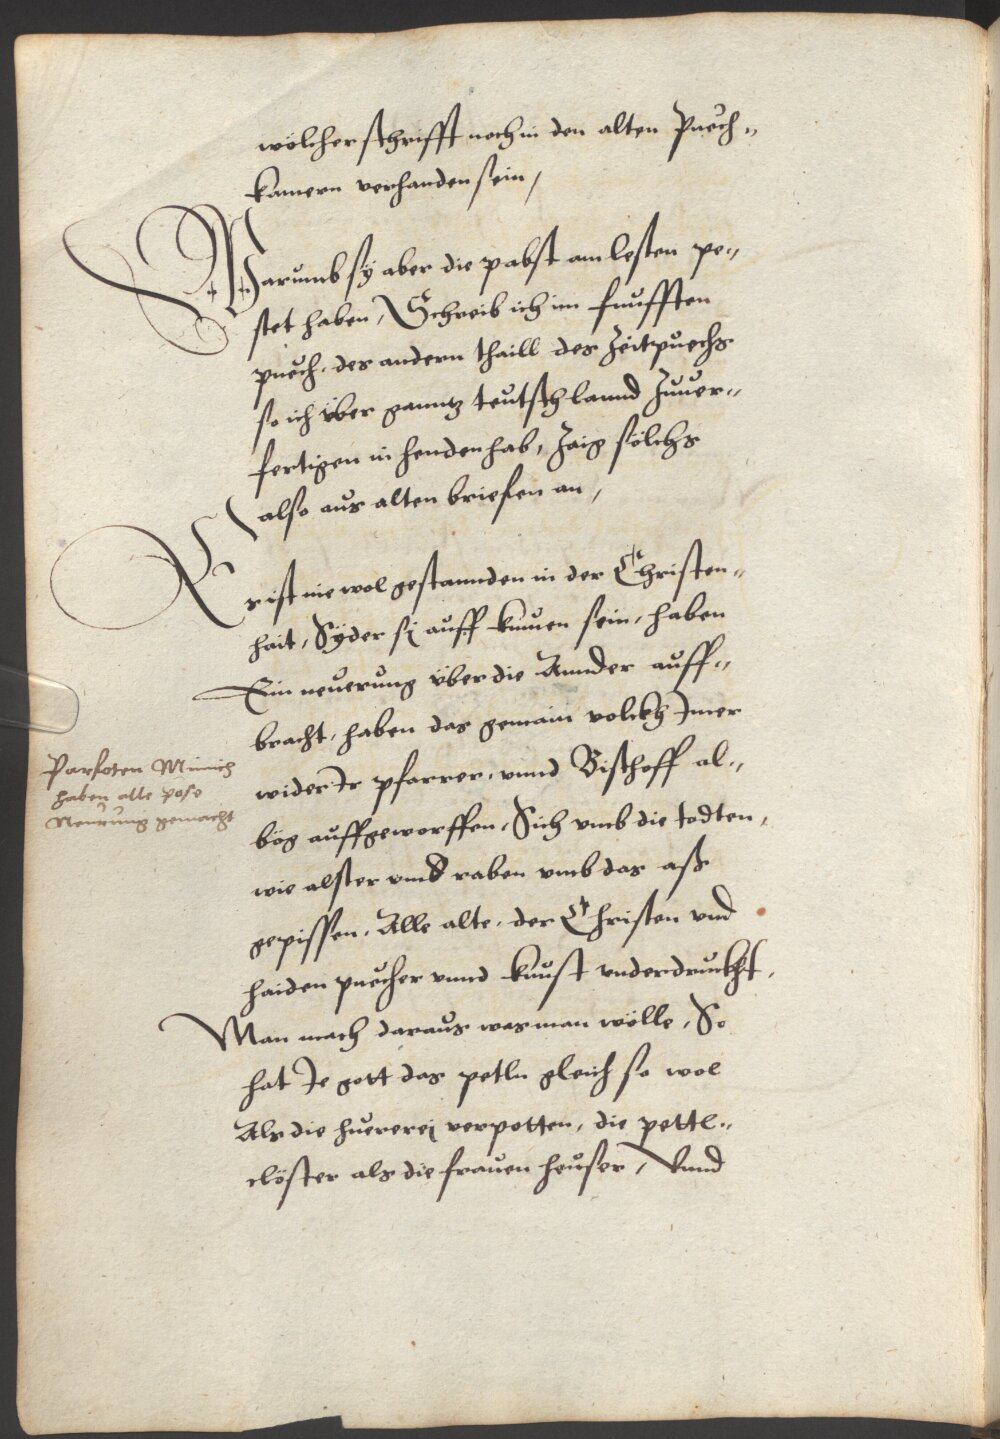 wölcher schrifft noch in den alten Puech„
kamern verhanden sein,
Warumb sy aber die pabst am lesten pe„
stet haben, Schreib ich im funfften
puech, des andern thaill des Zeitpuechs
so ich über ganntz teutschlannd Zuuer„
fertigen in henden hab, Zaig sölchs
also aus alten briefen an,
Es ist nie wol gestannden in der Christen„
hait, Syder sy auff kumen sein, haben
Ein neuerung über die Annder auff„
bracht, haben das gemain volckh Imer
wider Ir pfarrer, vnnd Bischoff al„
beg auffgeworffen, Sich vmb die todten,
wie alster vnd raben vmb das aß
gepissen, Alle alte, der Christen vnd
haiden puecher vnnd kunst vnderdruckht,
Man mach daraus was man wölle, So
hat Je gott das petln gleich so wol
Als die huererej verpotten, die pettl„
clöster als die frauen heuser, Vnnd
Parfoten Münich
haben alle pose
Neurung gemacht